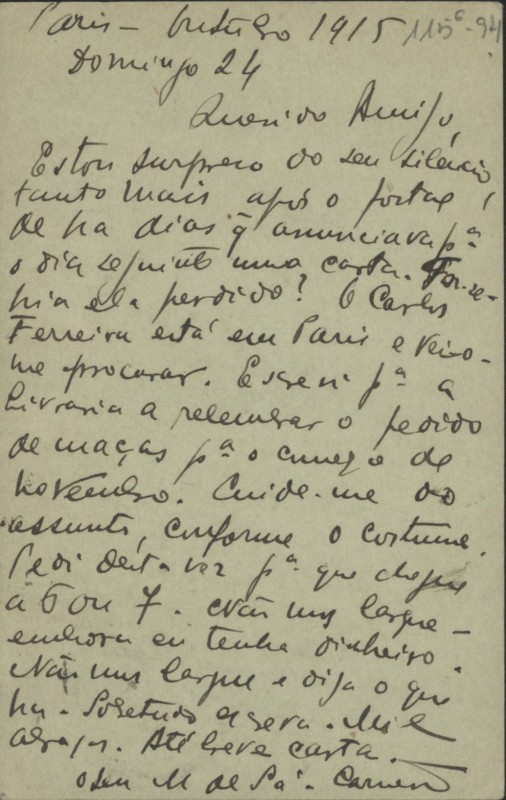 Paris – Outubro 1915 115⁶-94
Domingo 24
Querido Amigo,
Estou surpreso do seu silencio
tanto mais após o postal
de ha dias q̃ anunciava pª
o dia seguinte uma carta. Ter-se-
hia ela perdido? O Carlos
Ferreira está em Paris e veio-
me procurar. Escrevi pª a
Livraria a relembrar o pedido
de maças pª o começo de
novembro. Cuide-me do
assunto, conforme o costume.
Pedi desta vez pª que chegue
a 6 ou 7. Não mos largue –
embora eu tenha dinheiro.
Não mos largue e diga o que
ha. Sobretudo escreva. Mil
abraços. Até breve carta.
o seu M de Sá-Carneiro